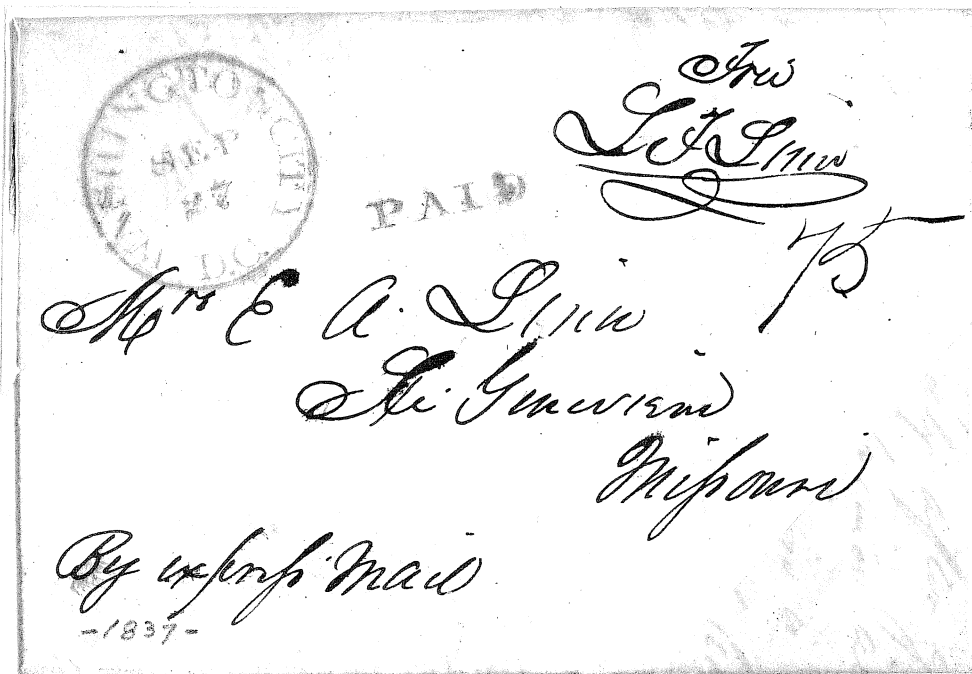 WASHINGTON CITY D.C.
SEP
27
PAID
Free
L F Linn
75
Mrs E A. Linn
Ste. Genevieve
Missouri
By express Mail
-1837-